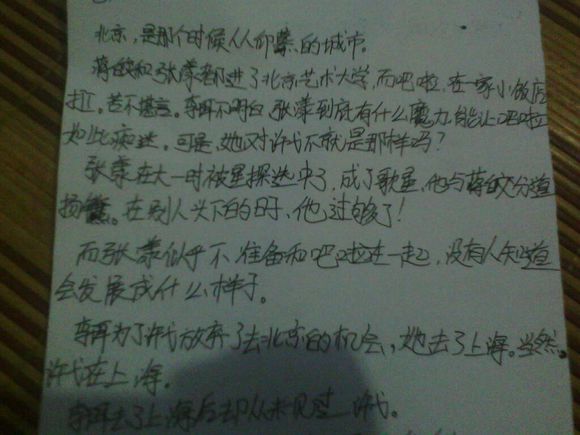 北京,是那个时候人人仰慕的城市。
蒋皎和张漾都进了北京艺术大学,而吧啦,在一家小饭店
拉,苦不堪言。李珥不明白张漾到底有什么魔力,能让吧啦
如此痴迷。可是,她对许弋不就是那样吗?
张漾在大一时被星探选中了,成了歌星,他与蒋皎分道
扬镳。在别人头下的日子,他过够了!
而张漾似乎不准备和吧啦在一起,没有人知道
会发展成什么样子。
李珥为了许弋放弃了去北京的机会,她去了上海。当然。
许弋在上海。
李珥去了上海后却从未见过许弋。